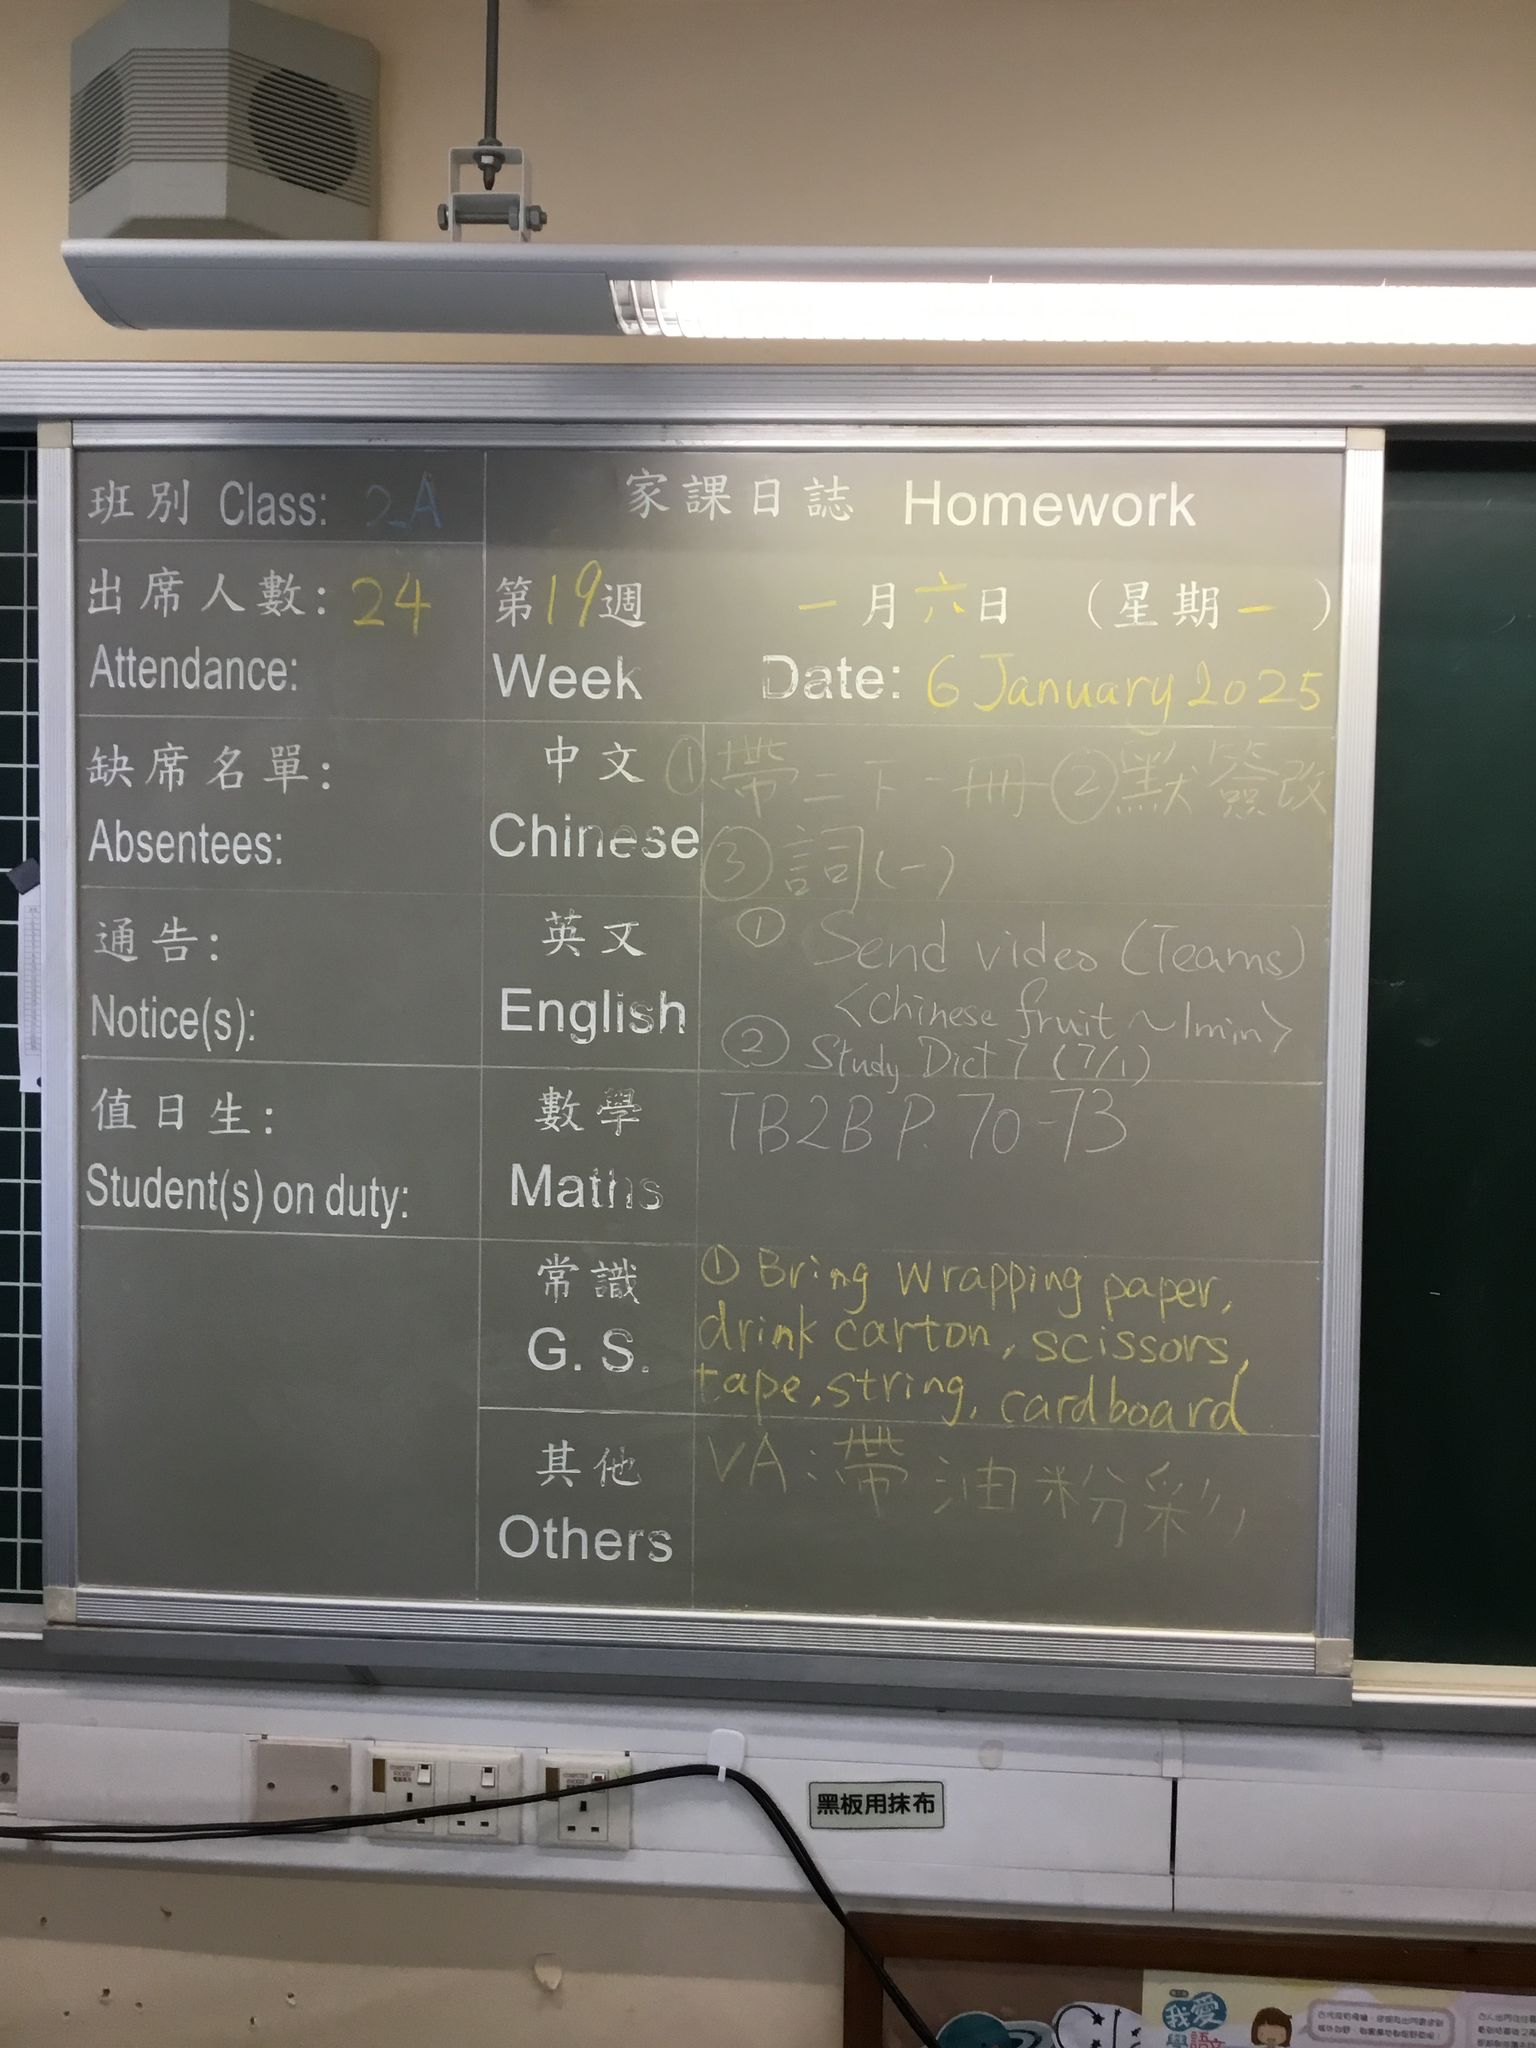 班別 Class: 2A
家課日誌 Homework
出席人數: 24
Attendance:
第19週 一月六日 (星期一)
Week Date: 6 January 2025
缺席名單:
Absentees:
通告:
Notice(s):
值日生:
Student(s) on duty:
中文 ①帶二下一冊 ②默簽改
Chinese ③詞(一)
英文 ① Send video (Teams)
English <Chinese fruit ~1min>
② Study Dict 7 (7/1)
數學 TB2B P. 70-73
Maths
常識 ① Bring wrapping paper,
G. S. drink carton, scissors,
tape, string, cardboard
其他 VA:帶油粉彩
Others
COMPUTER SOCKET
COMPUTER SOCKET
黑板用抹布
我愛
學語文